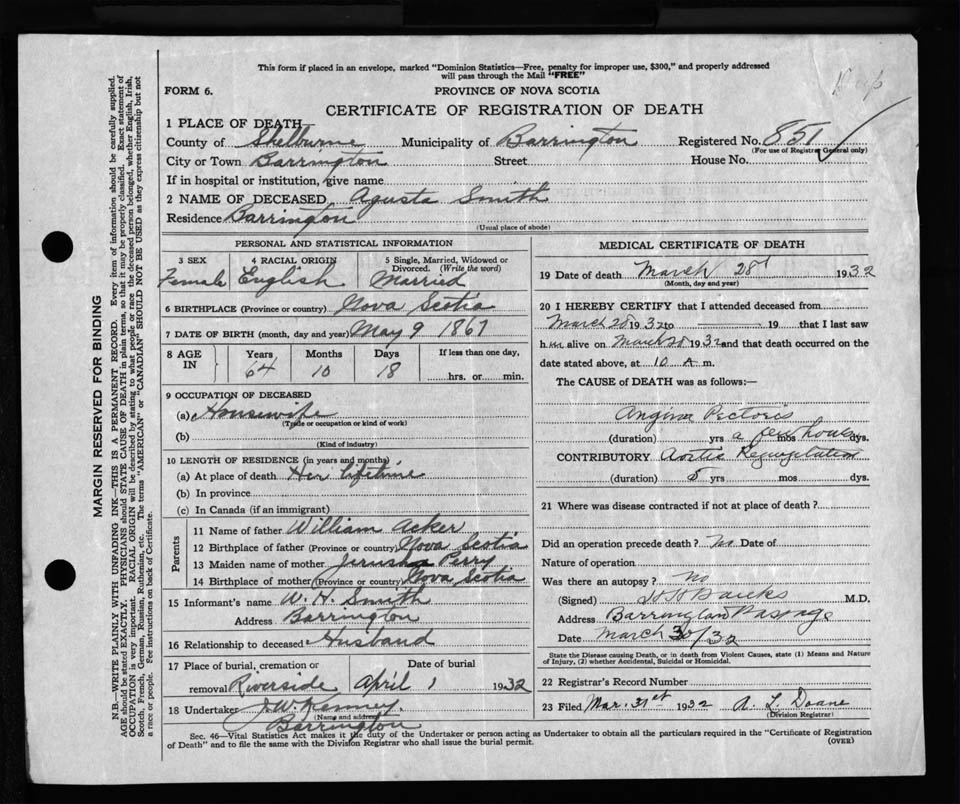 This form if placed in an envelope, marked "Dominion Statistics—Free, penalty for improper use, $300," and properly addressed
will pass through the Mail "FREE"
FORM 6.
PROVINCE OF NOVA SCOTIA
CERTIFICATE OF REGISTRATION OF DEATH
1 PLACE OF DEATH—
County of Shelburne Municipality of Barrington Registered No. 851
(For use of Registrar General only)
City or Town Barrington Street House No.
If in hospital or institution, give name
2 NAME OF DECEASED, Agusta Smith
Residence Barrington
(Usual place of abode)
PERSONAL AND STATISTICAL INFORMATION
3 SEX 4 RACIAL ORIGIN 5 Single, Married, Widowed or
Divorced. (Write the word)
Female English Married
6 BIRTHPLACE (Province or country) Nova Scotia
7 DATE OF BIRTH (month, day and year) May 9 1867
8 AGE IN Years Months Days If less than one day,
64 10 18 hrs. or min.
9 OCCUPATION OF DECEASED
(a) Housewife
(Trade or occupation or kind of work)
(b)
(Kind of industry)
10 LENGTH OF RESIDENCE (in years and months)
(a) At place of death Her lifetime
(b) In province
(c) In Canada (if an immigrant)
Parents
11 Name of father William Acker
12 Birthplace of father (Province or country) Nova Scotia
13 Maiden name of mother Jerusha Perry
14 Birthplace of mother (Province or country) Nova Scotia
15 Informant's name W. H. Smith
Address Barrington
16 Relationship to deceased Husband
17 Place of burial, cremation or Date of burial
removal Riverside April 1 1932
18 Undertaker J. W. Kenney.
(Name and address)
Barrington
MEDICAL CERTIFICATE OF DEATH
19 Date of death March 28 1932
(Month, day and year)
20 I HEREBY CERTIFY that I attended deceased from
March 28 1932 to 19 that I last saw
h alive on March 28 1932 and that death occurred on the
date stated above, at 10 A m.
The CAUSE of DEATH was as follows:
Angina Pectoris
(duration) yrs a few hours mos dys.
CONTRIBUTORY Aortic Regurgitation
(duration) 5 yrs mos dys.
21 Where was disease contracted if not at place of death?
Did an operation precede death? no Date of
Nature of operation
Was there an autopsy? no
(Signed) M.D.
Address Barrington Passage
Date March 30/32
State the Disease causing Death, or in death from Violent Causes, state (1) Means and Nature
of Injury, (2) whether Accidental, Suicidal or Homicidal.
22 Registrar's Record Number
23 Filed Mar. 31st 1932 A. L. Doane
(Division Registrar)
Sec. 46—Vital Statistics Act makes it the duty of the Undertaker or person acting as Undertaker to obtain all the particulars required in the "Certificate of Registration
of Death" and to file the same with the Division Registrar who shall issue the burial permit.
(OVER)
MARGIN RESERVED FOR BINDING
N.B.—WRITE PLAINLY WITH UNFADING INK—THIS IS A PERMANENT RECORD. Every item of information should be carefully supplied.
AGE should be stated EXACTLY. PHYSICIANS should STATE CAUSE OF DEATH in plain terms, so that it may be properly classified. Exact statement of
OCCUPATION is very important. RACIAL ORIGIN will be described by stating to what people or race the deceased person belonged, whether English, Irish,
Scotch, French, German, Russian, Ruthenian, etc. The terms "AMERICAN" or "CANADIAN" SHOULD NOT BE USED as they express citizenship but not
a race or people. Fee instructions on back of Certificate.